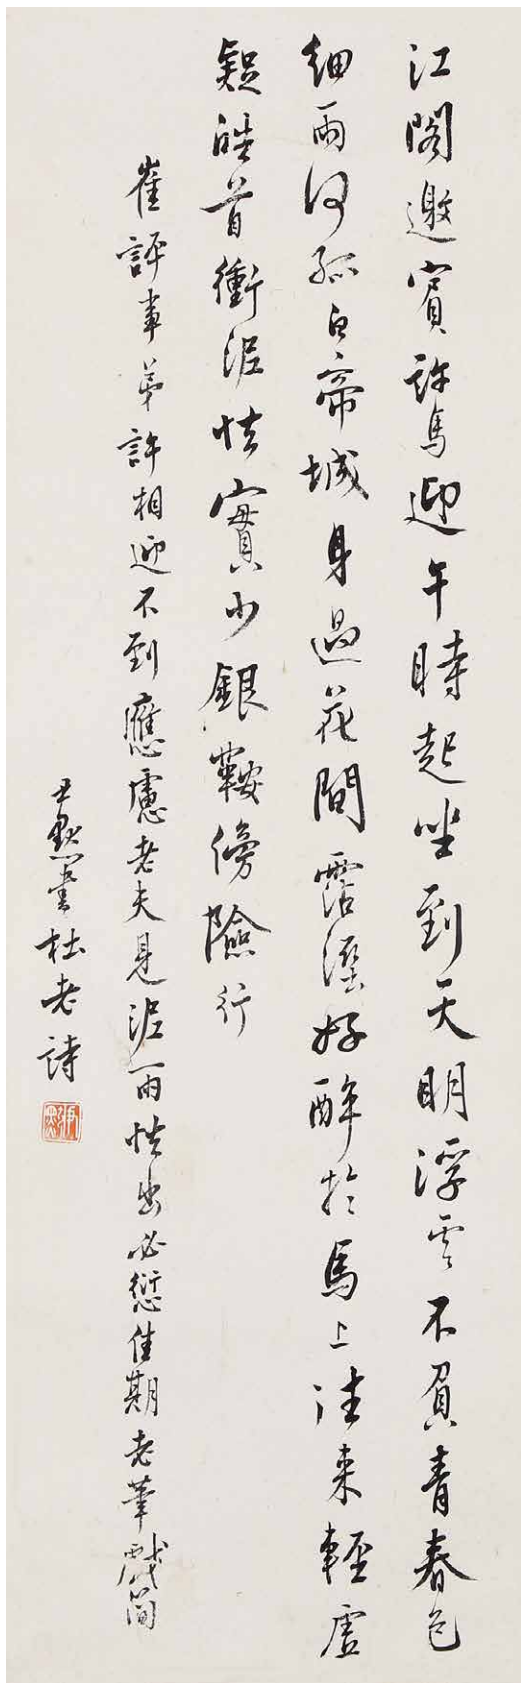 江閣邀賓許馬迎午時起坐到天明浮雲不負青春色
細雨何孤白帝城身過花間霑溼好醉於馬上往來輕虛
疑皓首衝泥怯實少銀鞍傍險行
崔評事弟許相迎不到應慮老夫見泥雨怯出必愆佳期走筆戲簡
尹默書杜老詩